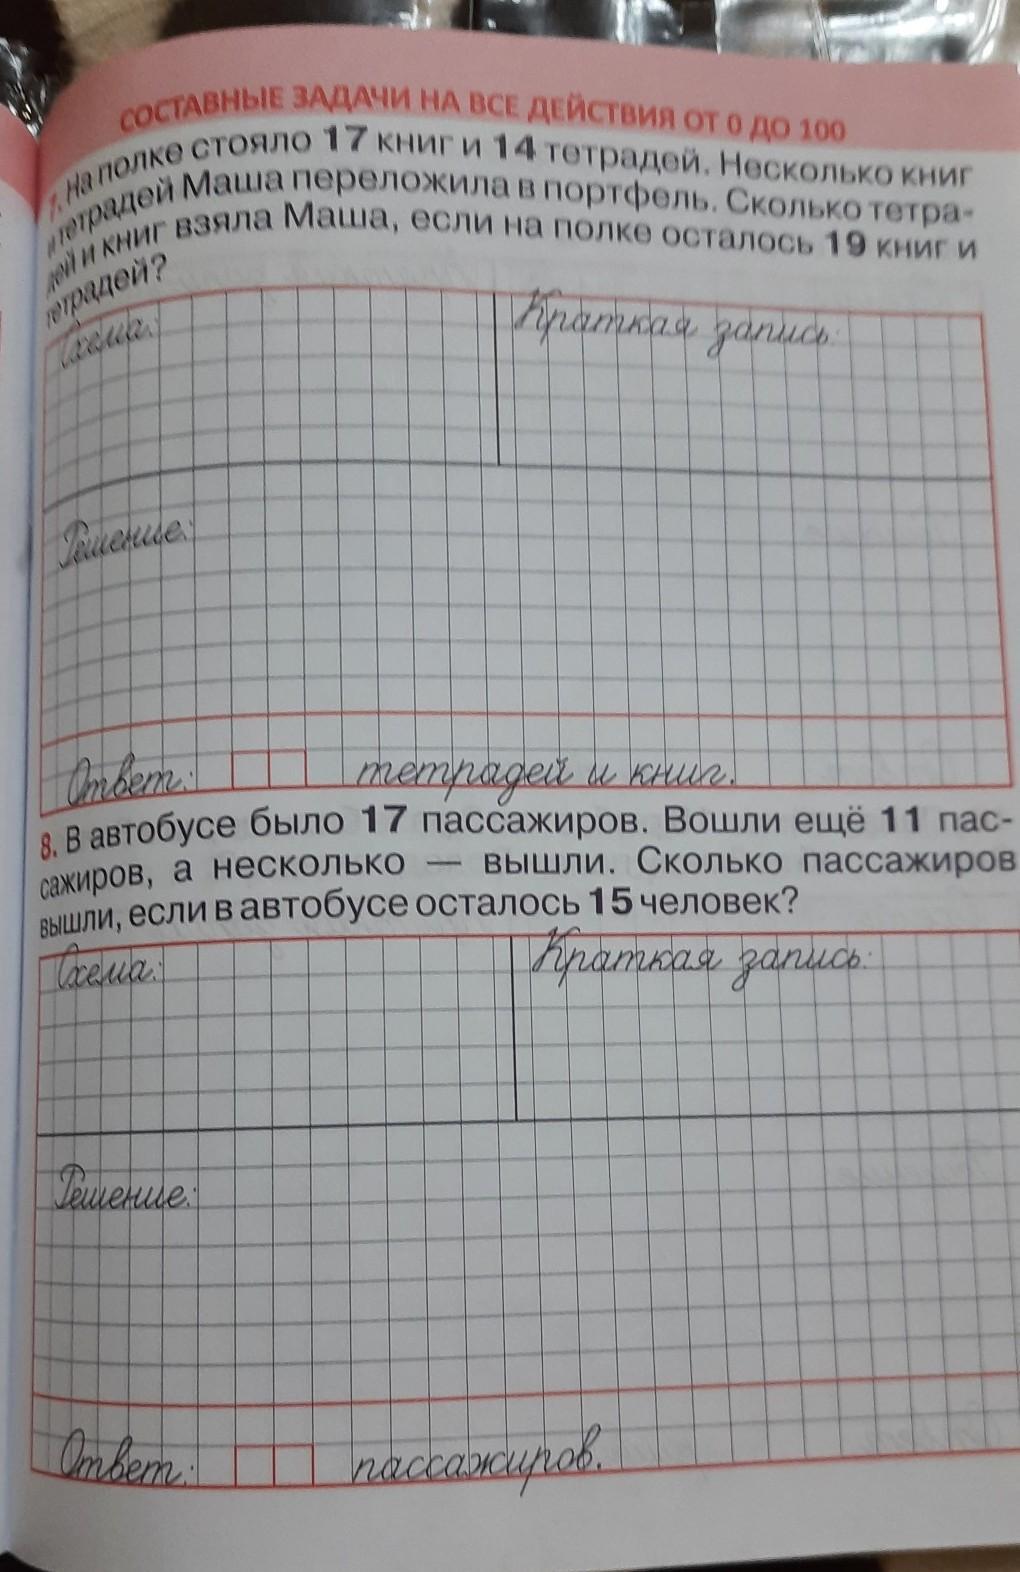 СОСТАВНЫЕ ЗАДАЧИ НА ВСЕ ДЕЙСТВИЯ ОТ 0 ДО 100
7. На полке стояло 17 книг и 14 тетрадей. Несколько книг
и тетрадей Маша переложила в портфель. Сколько тетра-
дей и книг взяла Маша, если на полке осталось 19 книг и
тетрадей?
Схема: Краткая запись:
Решение:
Ответ: тетрадей и книг.
8. В автобусе было 17 пассажиров. Вошли ещё 11 пас-
сажиров, а несколько — вышли. Сколько пассажиров
вышли, если в автобусе осталось 15 человек?
Схема: Краткая запись:
Решение:
Ответ: пассажиров.